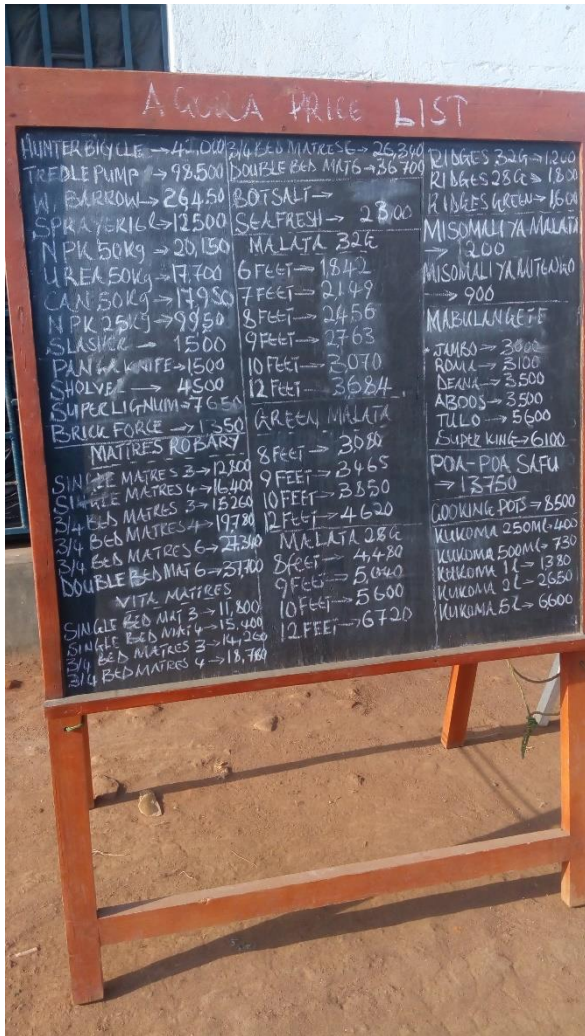 AGORA PRICE LIST
HUNTER BICYCLE → 42,000
TREDLE PUMP → 98,500
W. BARROW → 26450
SPRAYER 16L → 12500
NPK 50Kg → 20,150
UREA 50Kg → 17,700
CAN 50Kg → 17950
NPK 25Kg → 9950
SLASHER → 1500
PANGA KNIFE → 1500
SHOLVEL → 4500
SUPERLIGNUM → 7650
BRICK FORCE → 1350
MATIRES ROBARY
SINGLE MATRES 3 → 12800
SINGLE MATRES 4 → 16,400
3/4 BED MATRES 3 → 15260
3/4 BED MATRES 4 → 19780
3/4 BED MATRES 6 → 27,340
DOUBLE BED MAT 6 → 37,700
VITA MATIRES
SINGLE BED MAT 3 → 11,800
SINGLE BED MAT 4 → 15,400
3/4 BED MATRES 3 → 14,260
3/4 BED MATRES 4 → 18,780
3/4 BED MATRES 6 → 26,340
DOUBLE BED MAT 6 → 36,700
BOT SALT →
SEAFRESH → 2300
MALATA 32G
6 FEET → 1,842
7 FEET → 2,149
8 FEET → 2456
9 FEET → 2763
10 FEET → 3070
12 FEET → 3684
GREEN MALATA
8 FEET → 3080
9 FEET → 3465
10 FEET → 3850
12 FEET → 4620
MALATA 28G
8 feet → 4,480
9 FEET → 5,040
10 FEET → 5600
12 FEET → 6720
RIDGES 32G → 1200
RIDGES 28G → 1800
RIDGES GREEN → 1600
MISOMALI YA MALATA
→ 1200
MISOMALI YA MITENGO
→ 900
MABULANGETE
JAMBO → 3000
ROMA → 3100
DEANA → 3,500
ABOOS → 3500
TULO → 5600
SUPER KING → 6100
POA-POA SAFU
→ 13750
COOKING POTS → 8500
KUKOMA 250Ml → 400
KUKOMA 500Ml → 730
KUKOMA 1L → 1380
KUKOMA 2L → 2650
KUKOMA 5L → 6600